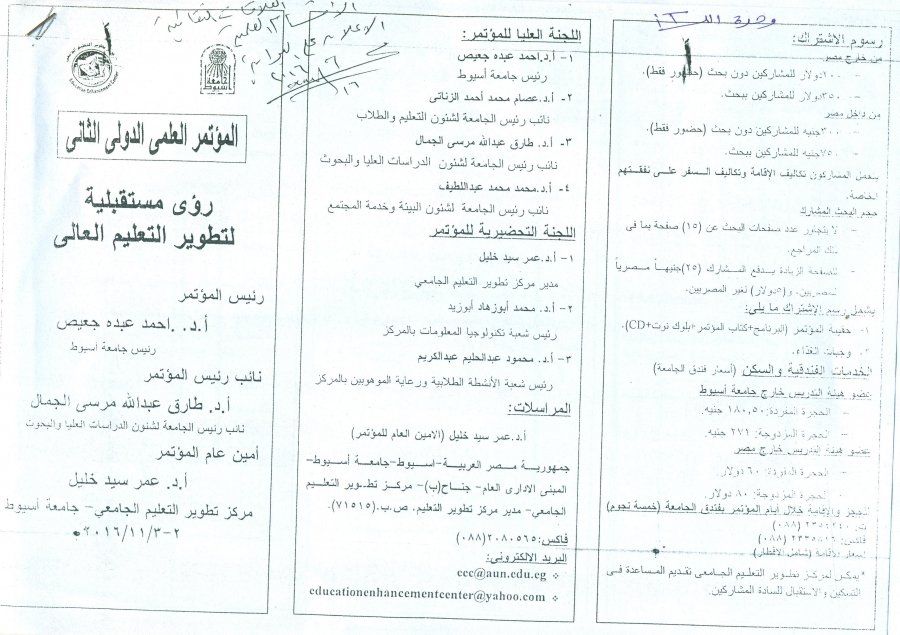 وحدة الـ IT
رسوم الاشتراك:
من خارج مصر
- ٢٠٠دولار للمشاركين دون بحث (حضور فقط).
- ٣٥٠دولار للمشاركين ببحث.
من داخل مصر
- ٣٠٠جنيه للمشاركين دون بحث (حضور فقط).
- ٧٥٠جنيه للمشاركين ببحث.
يتحمل المشاركون تكاليف الإقامة وتكاليف السفر على نفقتهم
الخاصة.
حجم البحث المشارك
- لا يتجاوز عدد صفحات البحث عن (١٥) صفحة بما فى
ذلك المراجع.
- للصفحة الزيادة يدفع المشارك (٢٥)جنيهاً مصرياً
للمصريين، و(٥دولار) لغير المصريين.
يشمل رسم الإشتراك ما يلي:
١- حقيبة المؤتمر (البرنامج+كتاب المؤتمر+بلوك نوت+CD).
٢. وجبات الغذاء.
الخدمات الفندقية والسكن (أسعار فندق الجامعة)
عضو هيئة التدريس خارج جامعة أسيوط
- الحجرة المفردة: ١٨٠,٥٠ جنيه.
- الحجرة المزدوجة: ٢٧١ جنيه.
عضو هيئة التدريس خارج مصر
- الحجرة المفردة: ٦٠ دولار.
- الحجرة المزدوجة: ٨٠ دولار.
للحجز والإقامة خلال أيام المؤتمر بفندق الجامعة (خمسة نجوم)
ت: ٢٣٥٤٢٤٠ (٠٨٨)
فاكس: ٢٣٣٥٨١٦ (٠٨٨)
اسعار الاقامة (شامل الافطار)
*يمكن لمركز تطوير التعليم الجامعى تقديم المساعدة فى
التسكين والاستقبال للسادة المشاركين.
اللجنة العليا للمؤتمر:
١- أ.د.احمد عبده جعيص
رئيس جامعة أسيوط
٢- أ.د.عصام محمد أحمد الزناتى
نائب رئيس الجامعة لشئون التعليم والطلاب
٣- أ.د. طارق عبدالله مرسى الجمال
نائب رئيس الجامعة لشئون الدراسات العليا والبحوث
٤- أ.د.محمد محمد عبداللطيف
نائب رئيس الجامعة لشئون البيئة وخدمة المجتمع
اللجنة التحضيرية للمؤتمر
١- أ.د.عمر سيد خليل
مدير مركز تطوير التعليم الجامعي
٢- أ.د. محمد أبوزهاد أبوزيد
رئيس شعبة تكنولوجيا المعلومات بالمركز
٣- أ.د. محمود عبدالحليم عبدالكريم
رئيس شعبة الأنشطة الطلابية ورعاية الموهوبين بالمركز
المراسلات:
أ.د.عمر سيد خليل (الامين العام للمؤتمر)
جمهورية مصر العربية-اسيوط-جامعة أسيوط-
المبنى الادارى العام- جناح(ب)- مركز تطوير التعليم
الجامعي- مدير مركز تطوير التعليم. ص.ب.(٧١٥١٥).
فاكس:٢٠٨٠٥٦٥(٠٨٨)
البريد الالكترونى:
ccc@aun.edu.eg
educationenhancementcenter@yahoo.com
جامعة أسيوط
Education Enhancement Center
المؤتمر العلمى الدولى الثانى
رؤى مستقبلية
لتطوير التعليم العالى
رئيس المؤتمر
أ.د. .احمد عبده جعيص
رئيس جامعة أسيوط
نائب رئيس المؤتمر
أ.د. طارق عبدالله مرسى الجمال
نائب رئيس الجامعة لشئون الدراسات العليا والبحوث
أمين عام المؤتمر
أ.د. عمر سيد خليل
مركز تطوير التعليم الجامعي- جامعة أسيوط
٢-٢٠١٦/١١/٣